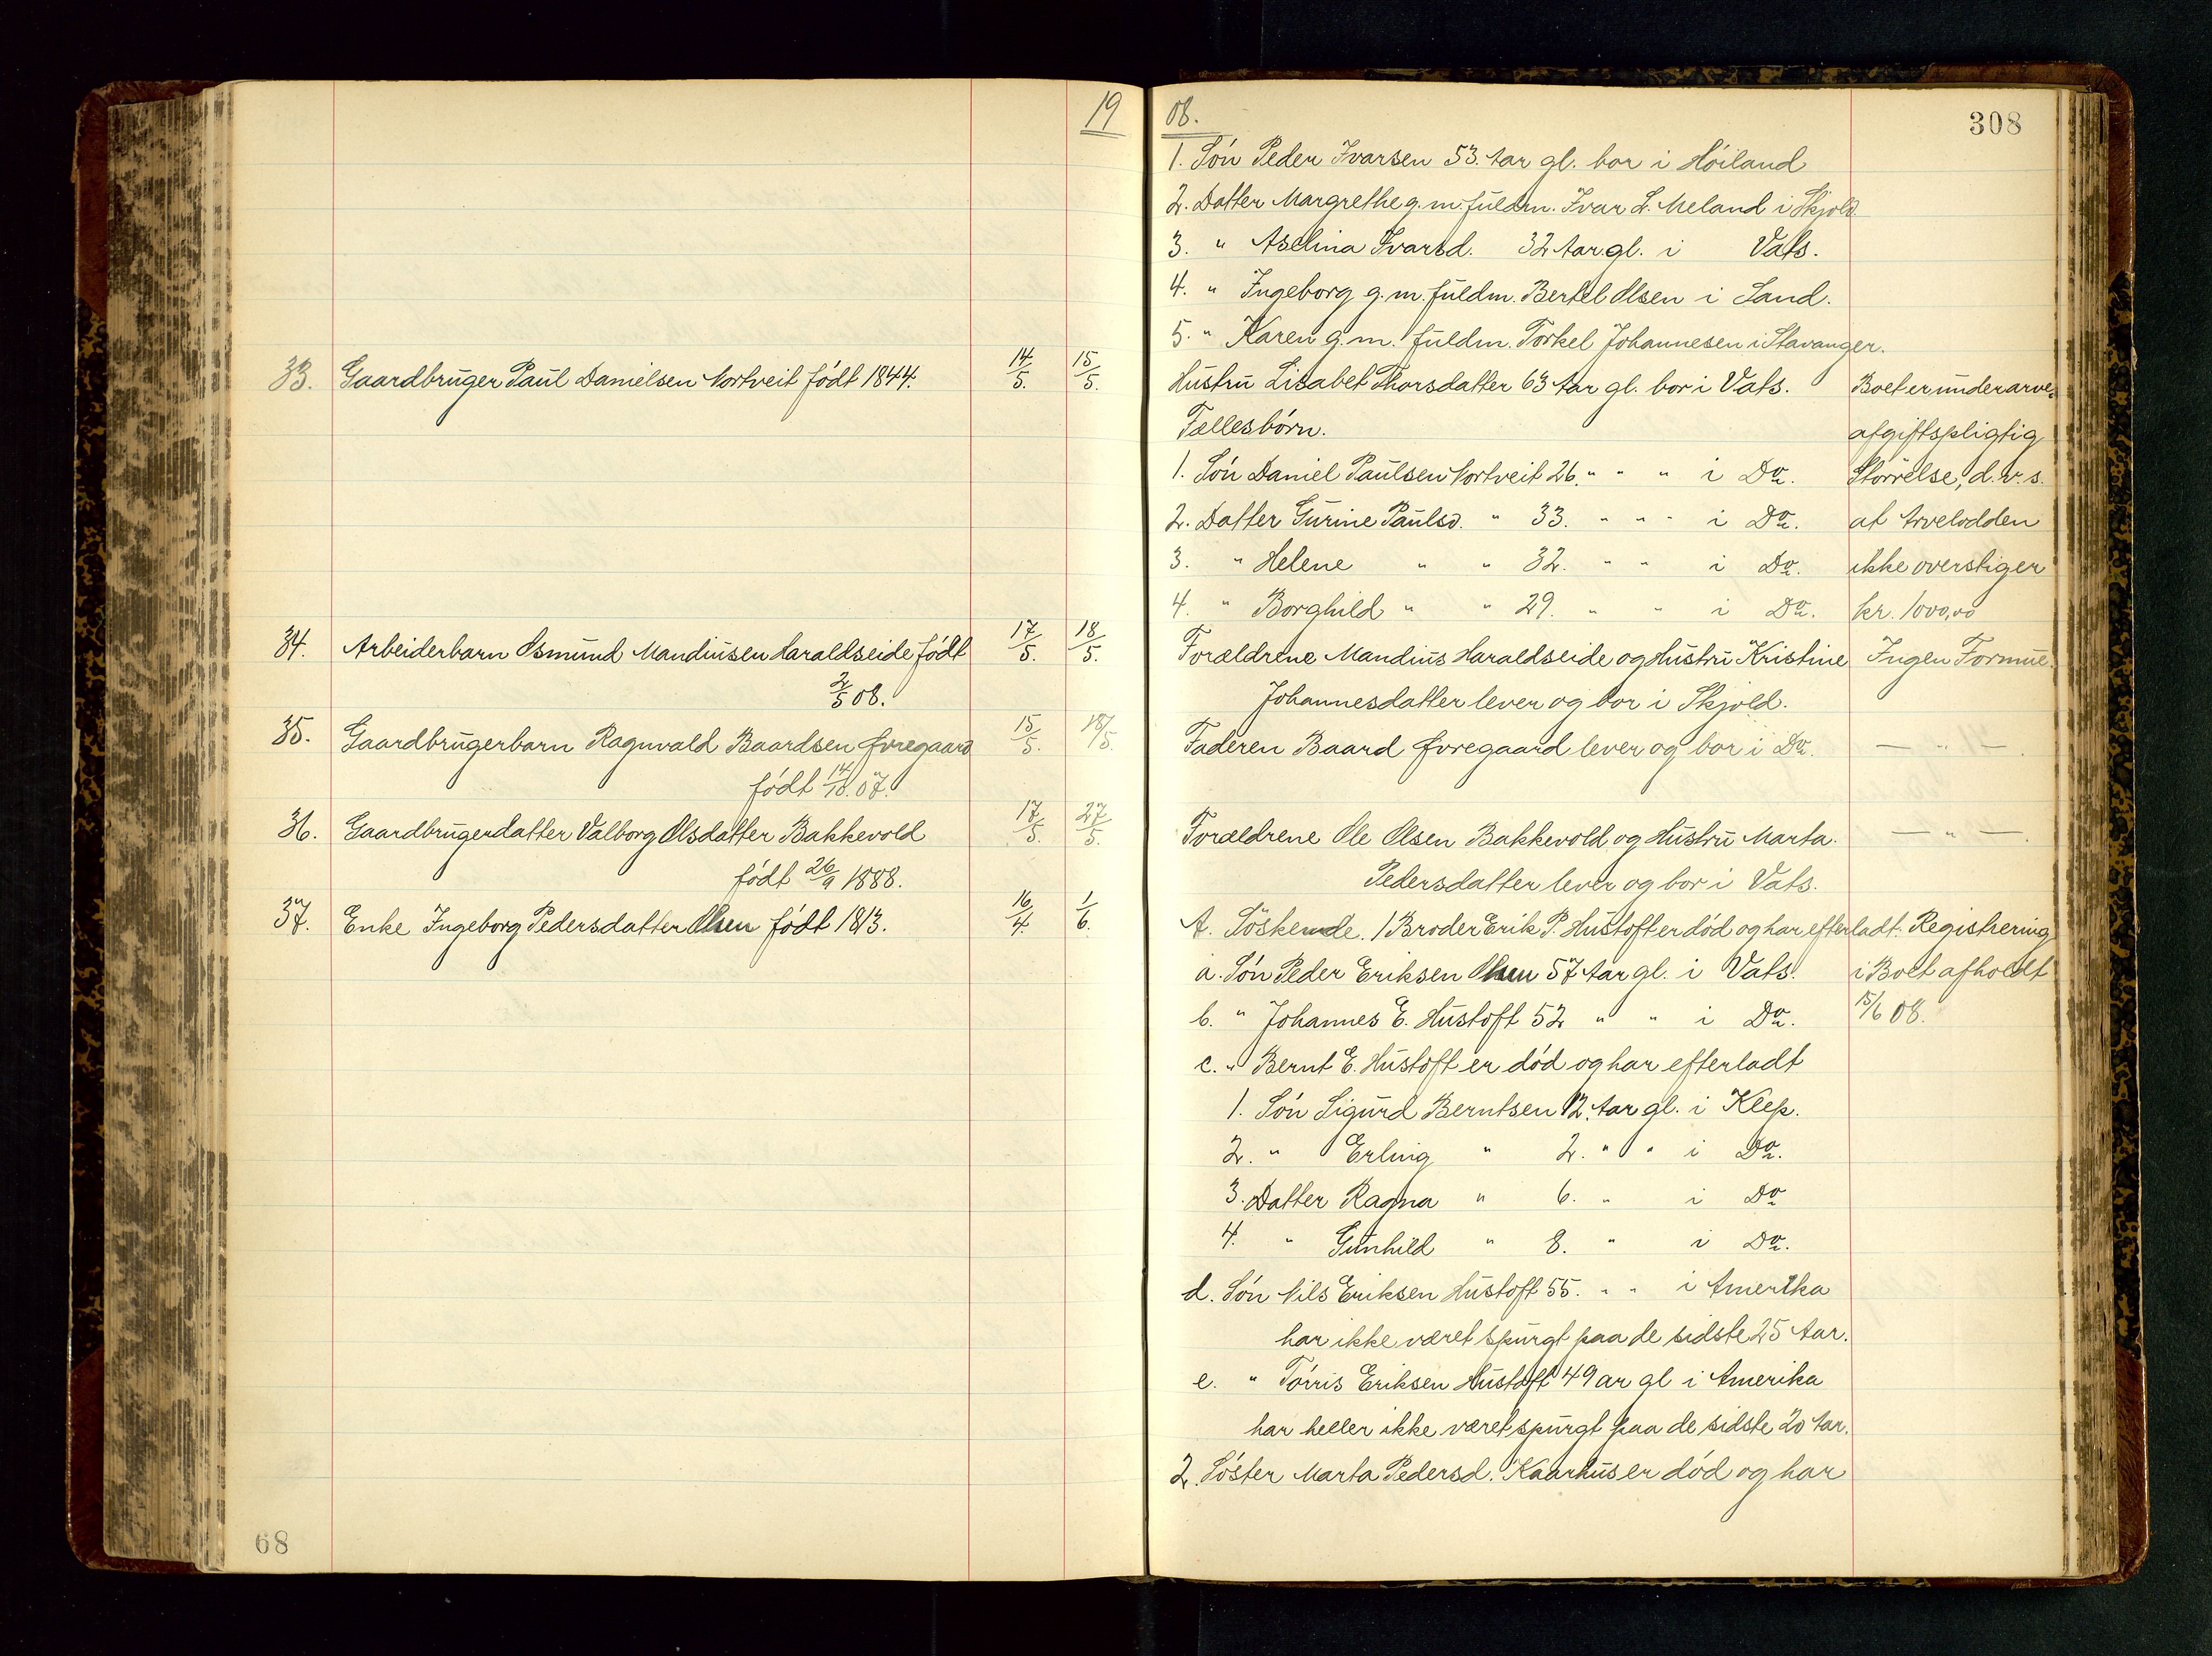 19
33. Gaardbruger Paul Danielsen Nortveit født 1844. 14/5. 15/5.
34. Arbeiderbarn Osmund Mandiusen Haraldseide født 17/5. 18/5.
2/5 08.
35. Gaardbrugerbarn Ragnvald Baardsen Øvregaard 15/5. 18/5.
født 14/10.07.
36. Gaardbrugerdatter Valborg Olsdatter Bakkevold 17/5. 27/5.
født 26/9 1888.
37. Enke Ingeborg Pedersdatter Olsen født 1813. 16/4. 1/6.
68
08. 308
1. Søn Peder Ivarsen 53. Aar gl. bor i Høiland
2. Datter Margrethe g. m. fuldm. Ivar L. Meland i Skjold
3. " Aselina Ivarsd. 32 Aar gl. i Vats.
4. " Ingeborg g. m. fuldm. Bertel Olsen i Sand.
5. " Karen g. m. fuldm. Torkel Johannesen i Stavanger.
Hustru Lisabet Thorsdatter 63 Aar gl. bor i Vats. Boet er under arve-
Fællesbørn. afgiftspligtig
1. Søn Daniel Paulsen Nortveit 26. " " " i Do. Størrelse, d. v. s.
2. Datter Gurine Paulsd. " 33. " " " i Do. at Arvelodden
3. " Helene " " 32. " " i Do. ikke overstiger
4. " Borghild " " 29. " " i Do. kr. 1000,00
Forældrene Mandius Haraldseide og Hustru Kristine Ingen Formue.
Johannesdatter lever og bor i Skjold.
Faderen Baard Øvregaard lever og bor i Do. — " —.
Forældrene Ole Olsen Bakkevold og Hustru Marta. — " —.
Pedersdatter lever og bor i Vats.
A. Søskende. 1 Broder Erik P. Hustoft er død og har efterladt: Registrering
a. Søn Peder Eriksen Olsen 57 Aar gl. i Vats. i Boet afholdt
b. " Johannes E. Hustoft 52 " " i Do. 15/6 08.
c. " Bernt E. Hustoft er død og har efterladt
1. Søn Sigurd Berntsen 12. Aar gl. i Klep.
2. " Erling " 2. " " i Do.
3. Datter Ragna " 6. " i Do
4. " Gunhild " 8. " i Do.
d. Søn Nils Eriksen Hustoft 55. " " i Amerika
har ikke været spurgt paa de sidste 25 Aar.
e. " Tørris Eriksen Hustoft 49 ar gl i Amerika
har heller ikke været spurgt paa de sidste 20 Aar.
2. Søster Marta Pedersd. Kaarhus er død og har